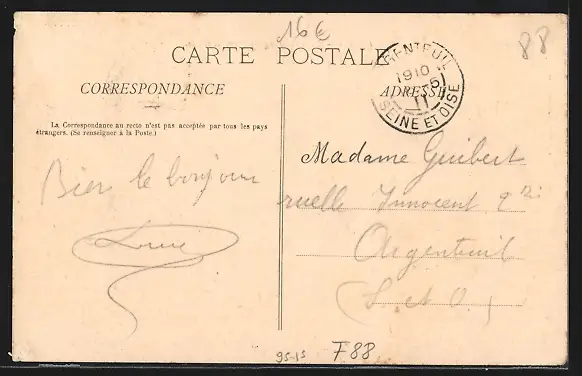 16€
88
CARTE POSTALE
CORRESPONDANCE
La Correspondance au recto n'est pas acceptée par tous les pays
étrangers. (Se renseigner à la Poste.)
Bien le bonjour
Louise
ARGENTEUIL
1910
11
SEINE ET OISE
ADRESSE
Madame Guibert
ruelle Innocent
Argenteuil
(S. et O.)
95-15
F88